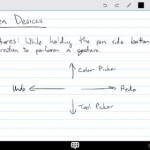 en Devices
tures: While holding the pen side button
rection to perform a gesture.
Color Picker
Undo
Redo
Tool Picker